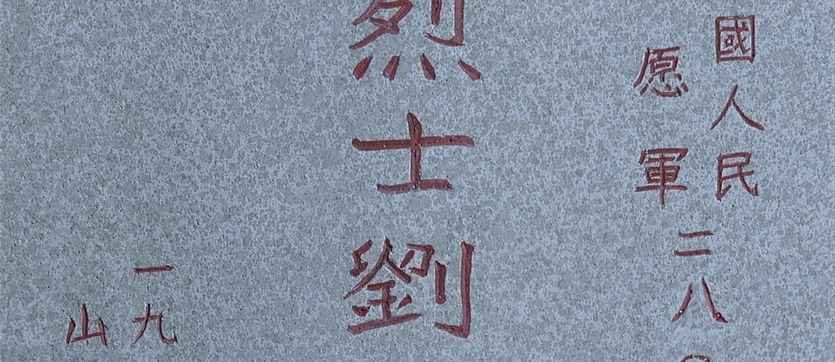 國人民
愿軍
二八
烈士劉
一九
山